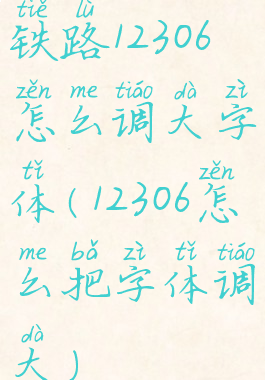 tiě lù
铁路12306
zěn me tiáo dà zì
怎么调大字
tǐ zěn
体(12306怎
me bǎ zì tǐ tiáo
么把字体调
dà
大)